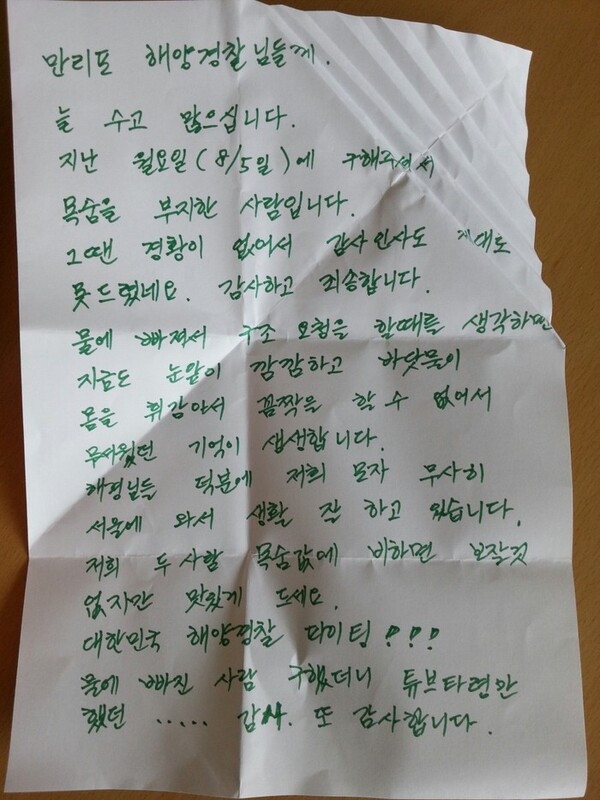 만리포 해양경찰님들께.
늘 수고 많으십니다.
지난 월요일(8/5일)에 구해주셔서
목숨을 부지한 사람입니다.
그땐 경황이 없어서 감사인사도 제대로
못드렸네요. 감사하고 죄송합니다.
물에 빠져서 구조 요청을 할때를 생각하면
지금도 눈앞이 깜깜하고 바닷물이
몸을 휘감아서 꼼짝을 할 수 없어서
무서웠던 기억이 생생합니다.
해경님들 덕분에 저희 모자 무사히
서울에 와서 생활 잘 하고 있습니다.
저희 두사람 목숨값에 비하면 보잘것
없지만 맛있게 드세요.
대한민국 해양경찰 다이팅!!!
물에 빠진 사람 구했더니 튜브타령만
했던 ..... 감사. 또 감사합니다.